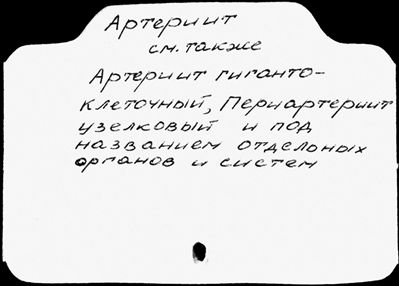 Артериит
см. также
Артериит гиганто-
клеточный, Периартериит
узелковый и под
названием отдельных
органов и систем